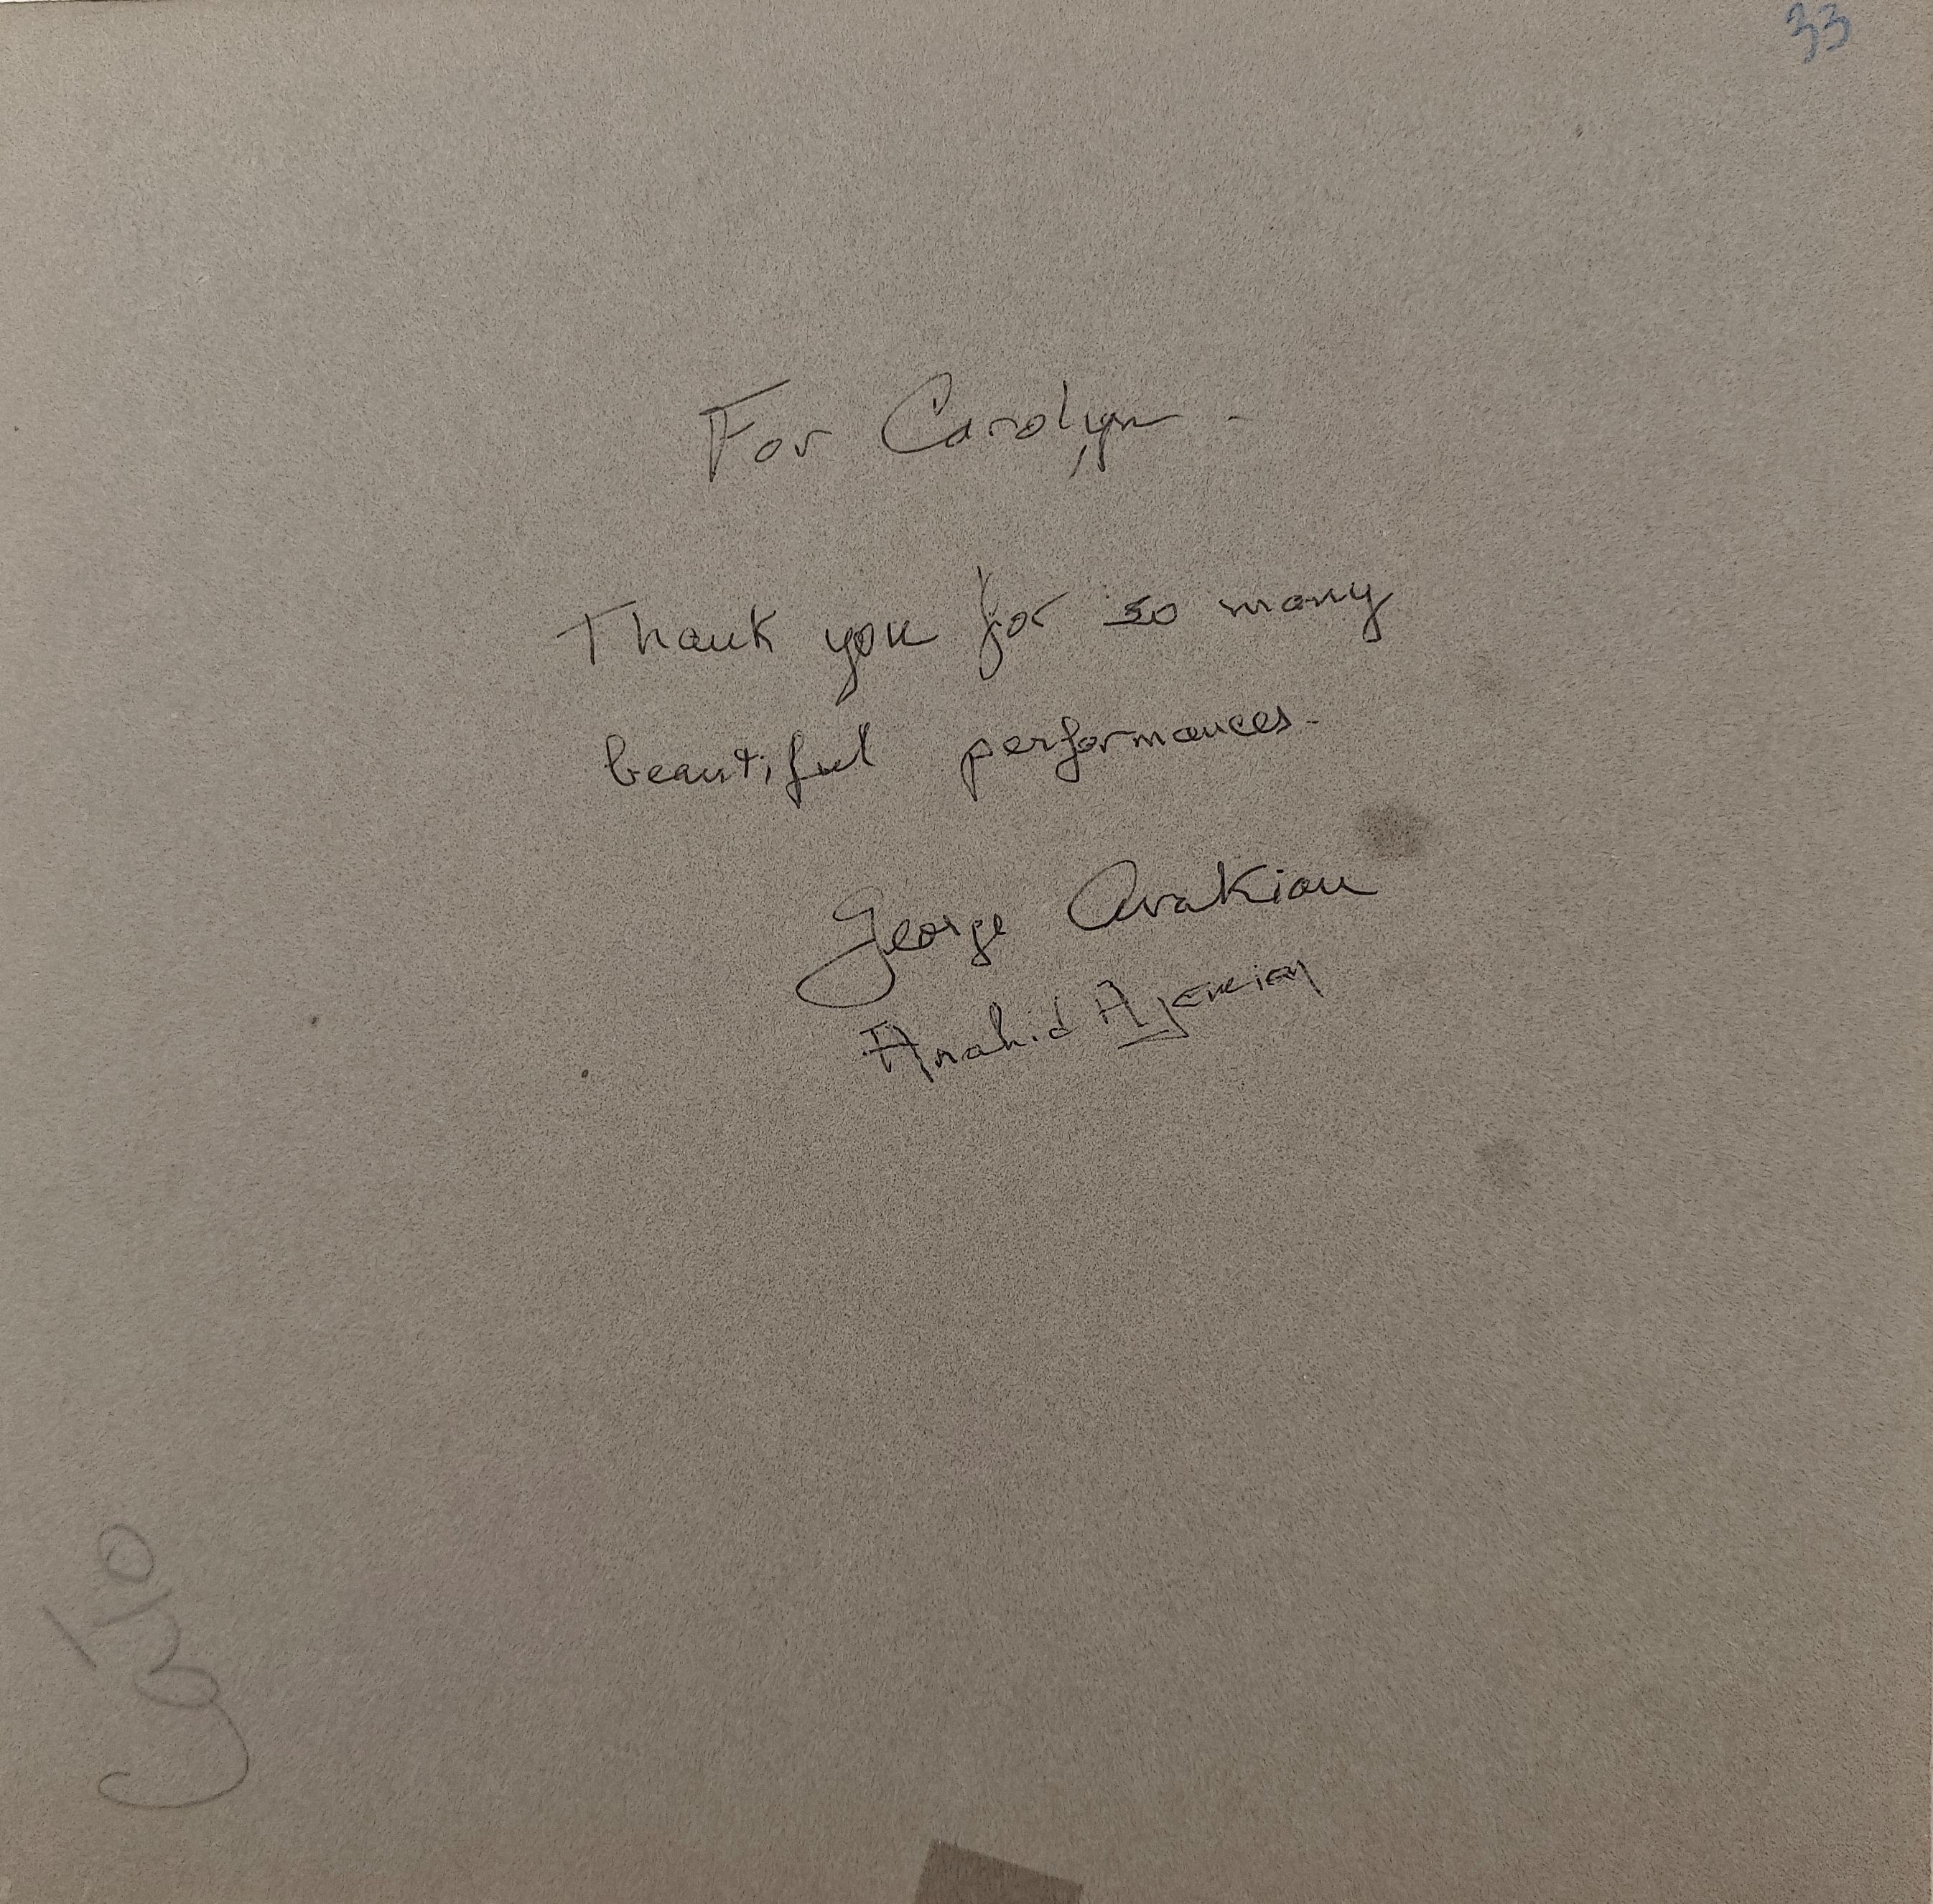 33
For Carolyn -
Thank you for so many
beautiful performances -
George Avakian
Anahid Ajemian